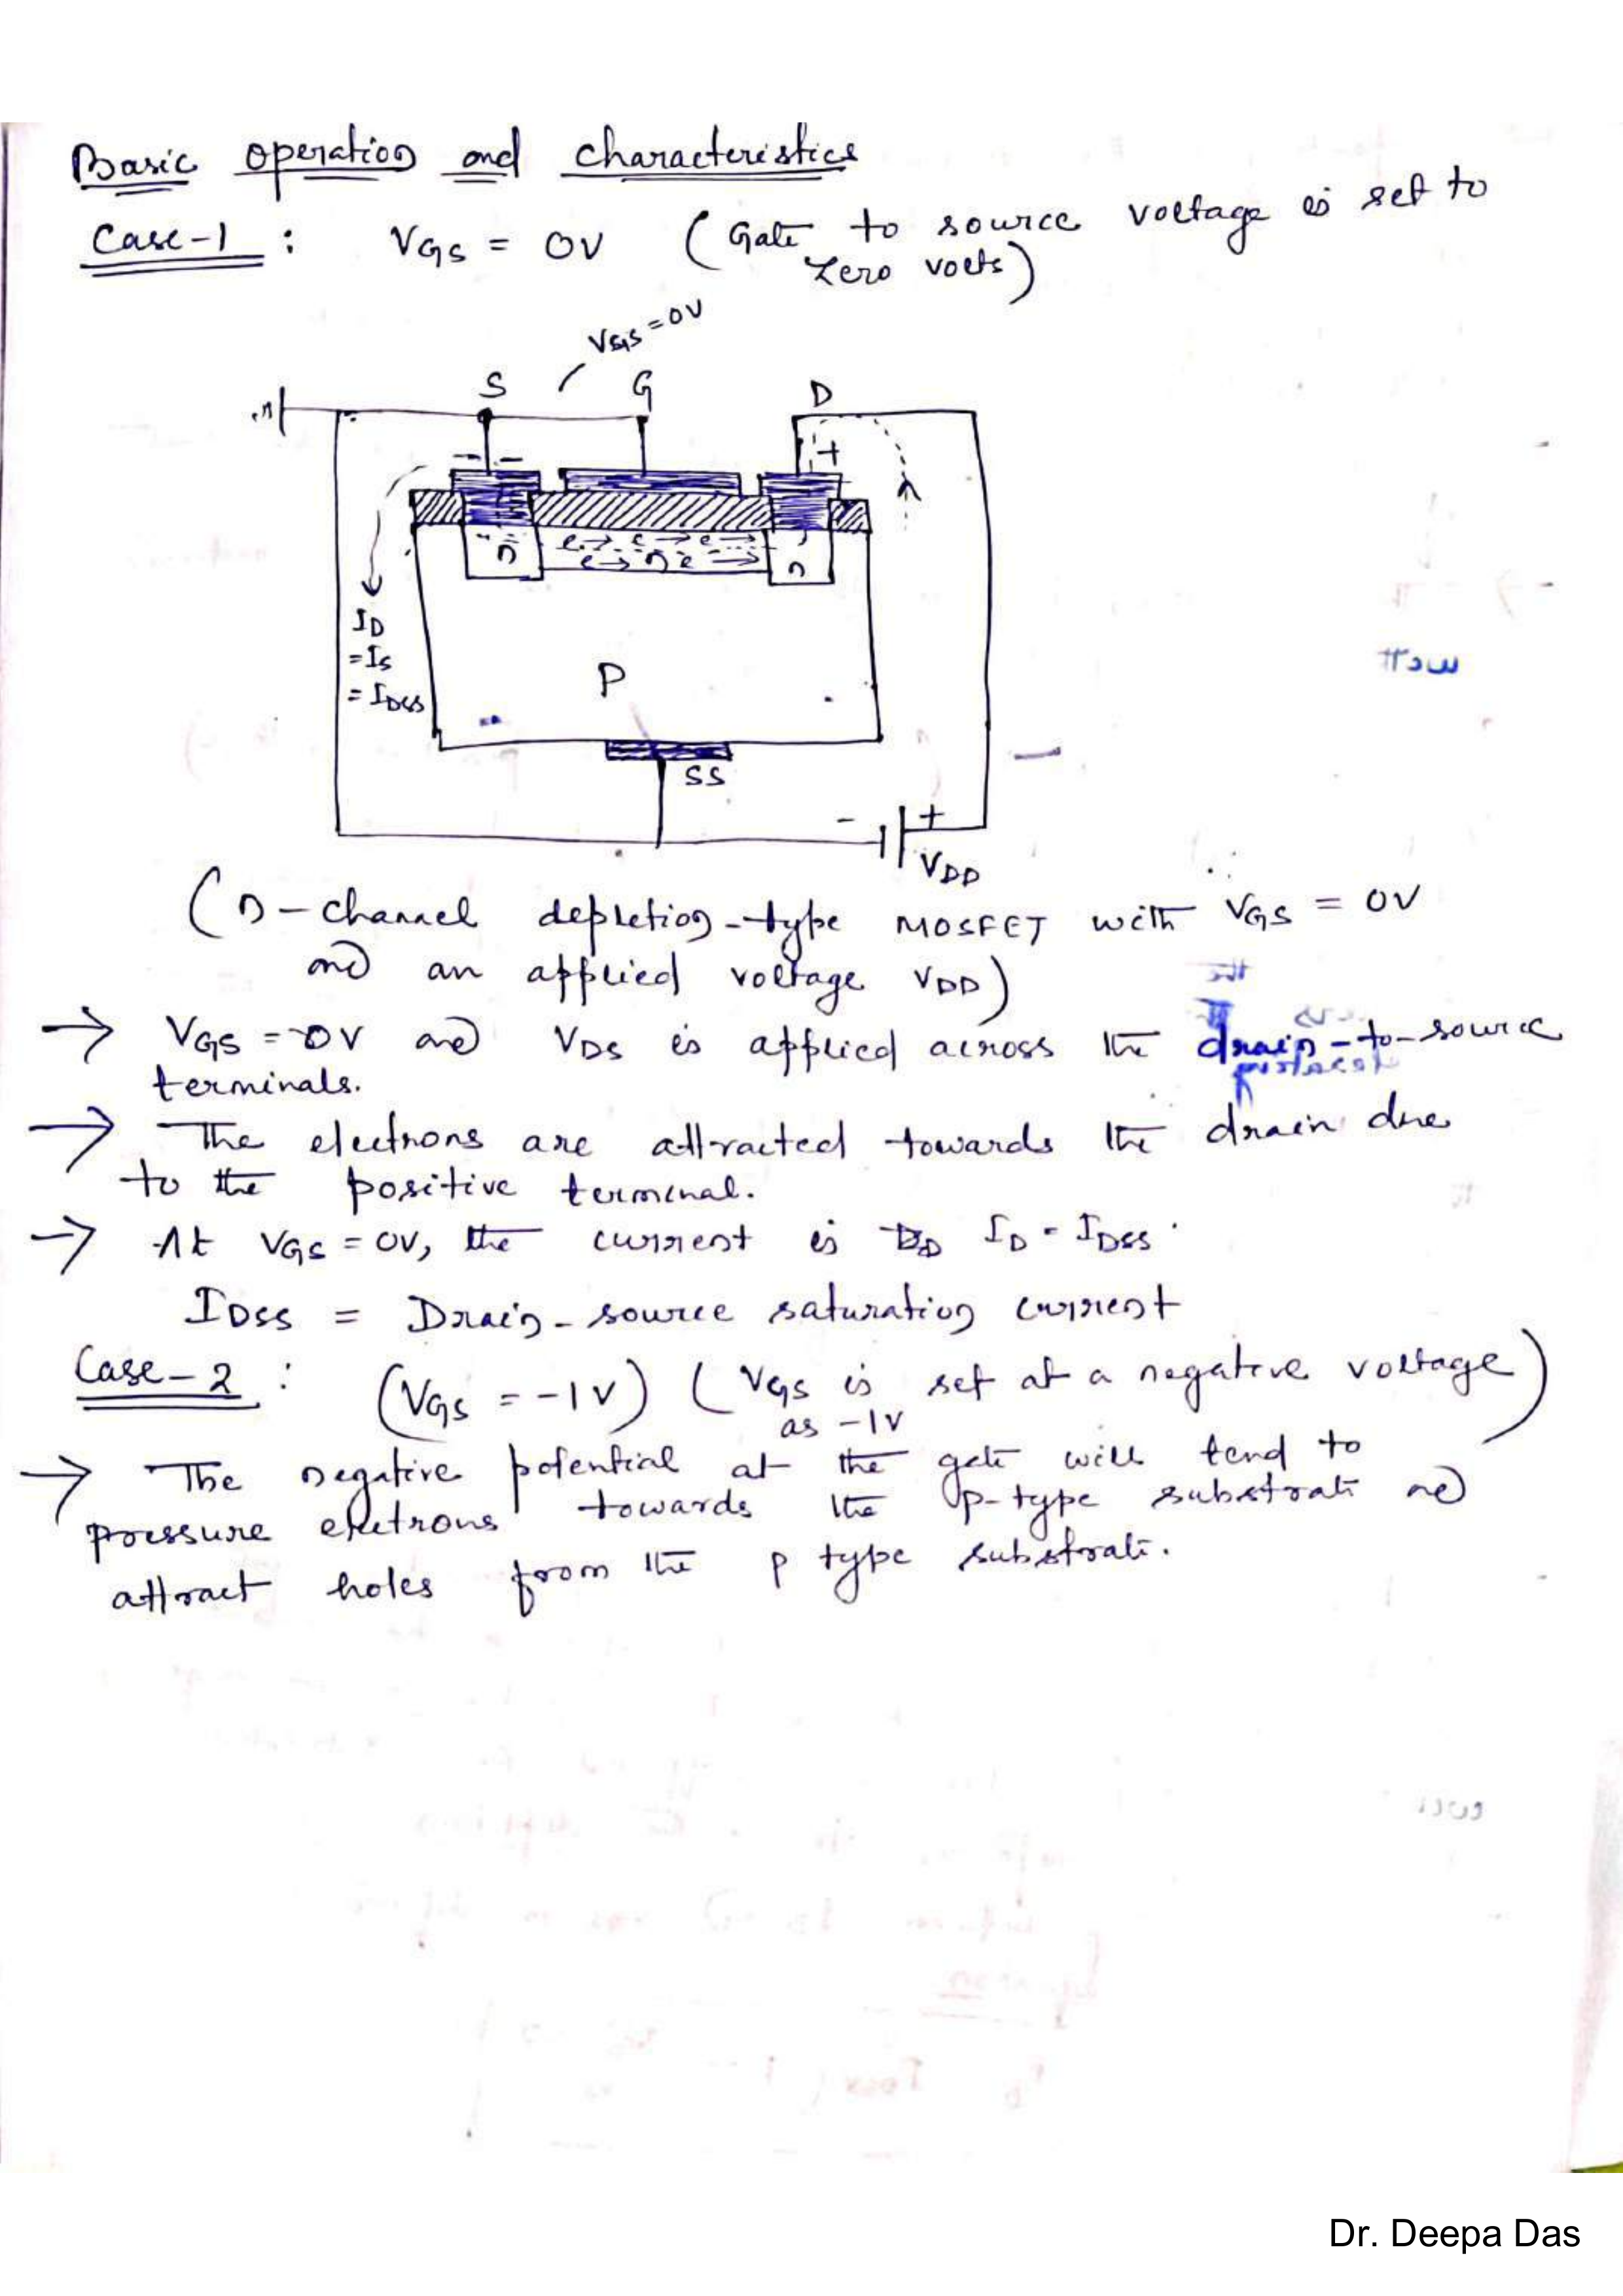 Basic operation and characteristics
Case-1 : VGS = 0V (Gate to source voltage is set to
zero volts)
VGS = 0V
S G D
- - +
n e→ e→ e→
e→ n e → n
ID
= IS
= IDSS
P
SS
- +
VDD
(n-channel depletion-type MOSFET with VGS = 0V
and an applied voltage VDD)
→ VGS = 0V and VDS is applied across the drain-to-source
terminals.
→ The electrons are attracted towards the drain due
to the positive terminal.
→ At VGS = 0V, the current is ID = IDSS.
IDSS = Drain-source saturation current
Case-2 : (VGS = -1V) (VGS is set at a negative voltage)
as -1V
→ The negative potential at the gate will tend to
pressure electrons towards the p-type substrate and
attract holes from the p type substrate.
Dr. Deepa Das